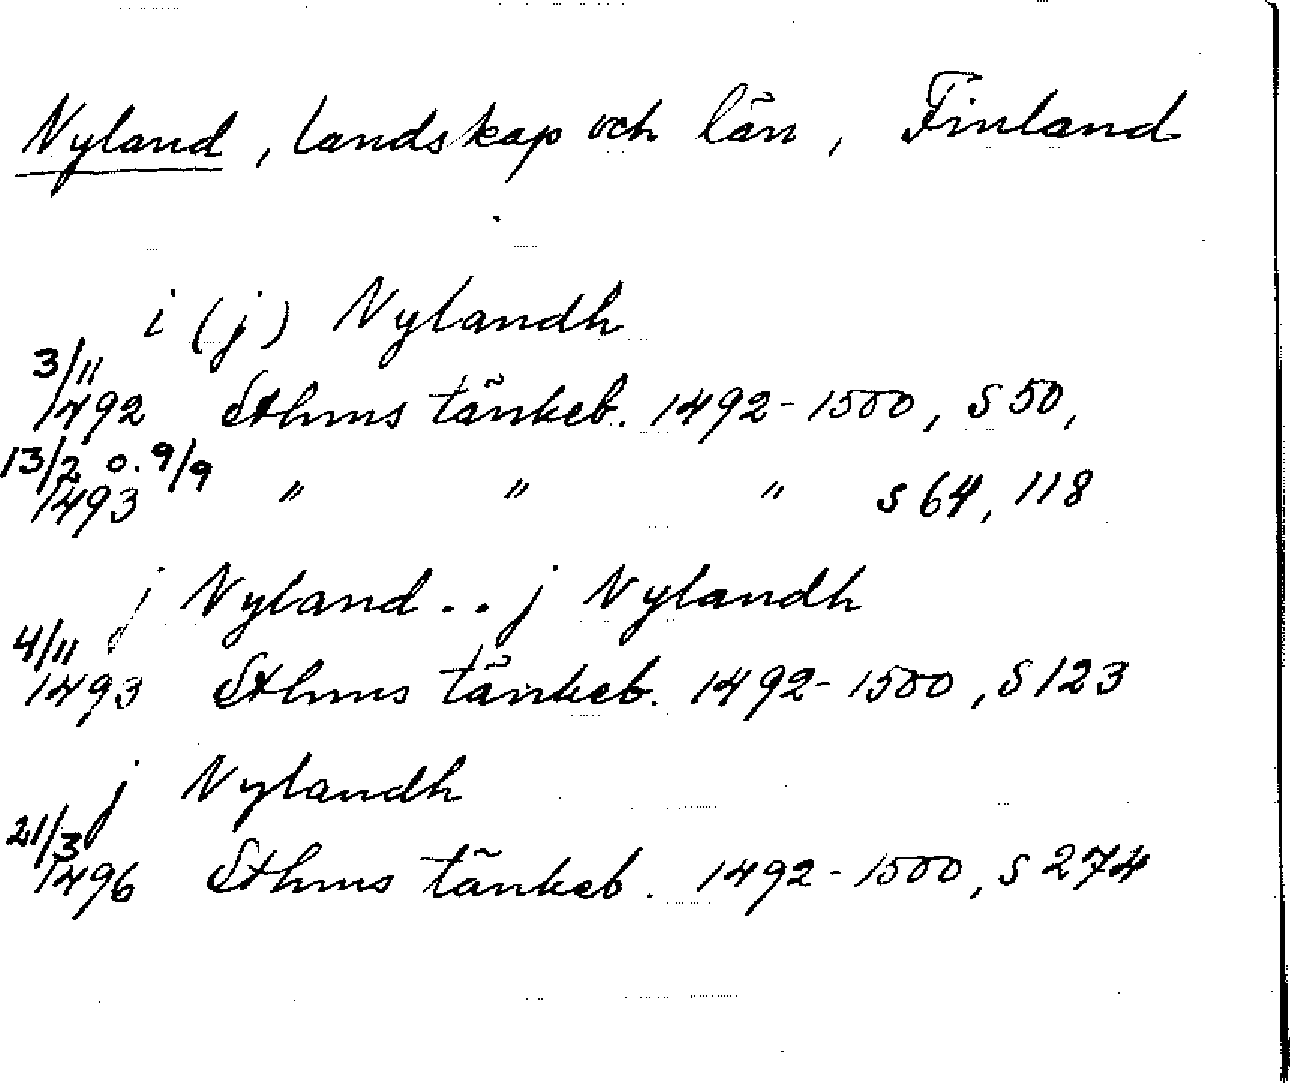 Nyland, landskap och län, Finland
i (j) Nylandh
3/11
1492 Sthms tänkeb. 1492-1500, s 50,
13/2 o. 9/9
1493 " " " s 64, 118
j Nyland.. j Nylandh
4/11
1493 Sthms tänkeb. 1492-1500, s 123
j Nylandh
21/3
1496 Sthms tänkeb. 1492-1500, s 274